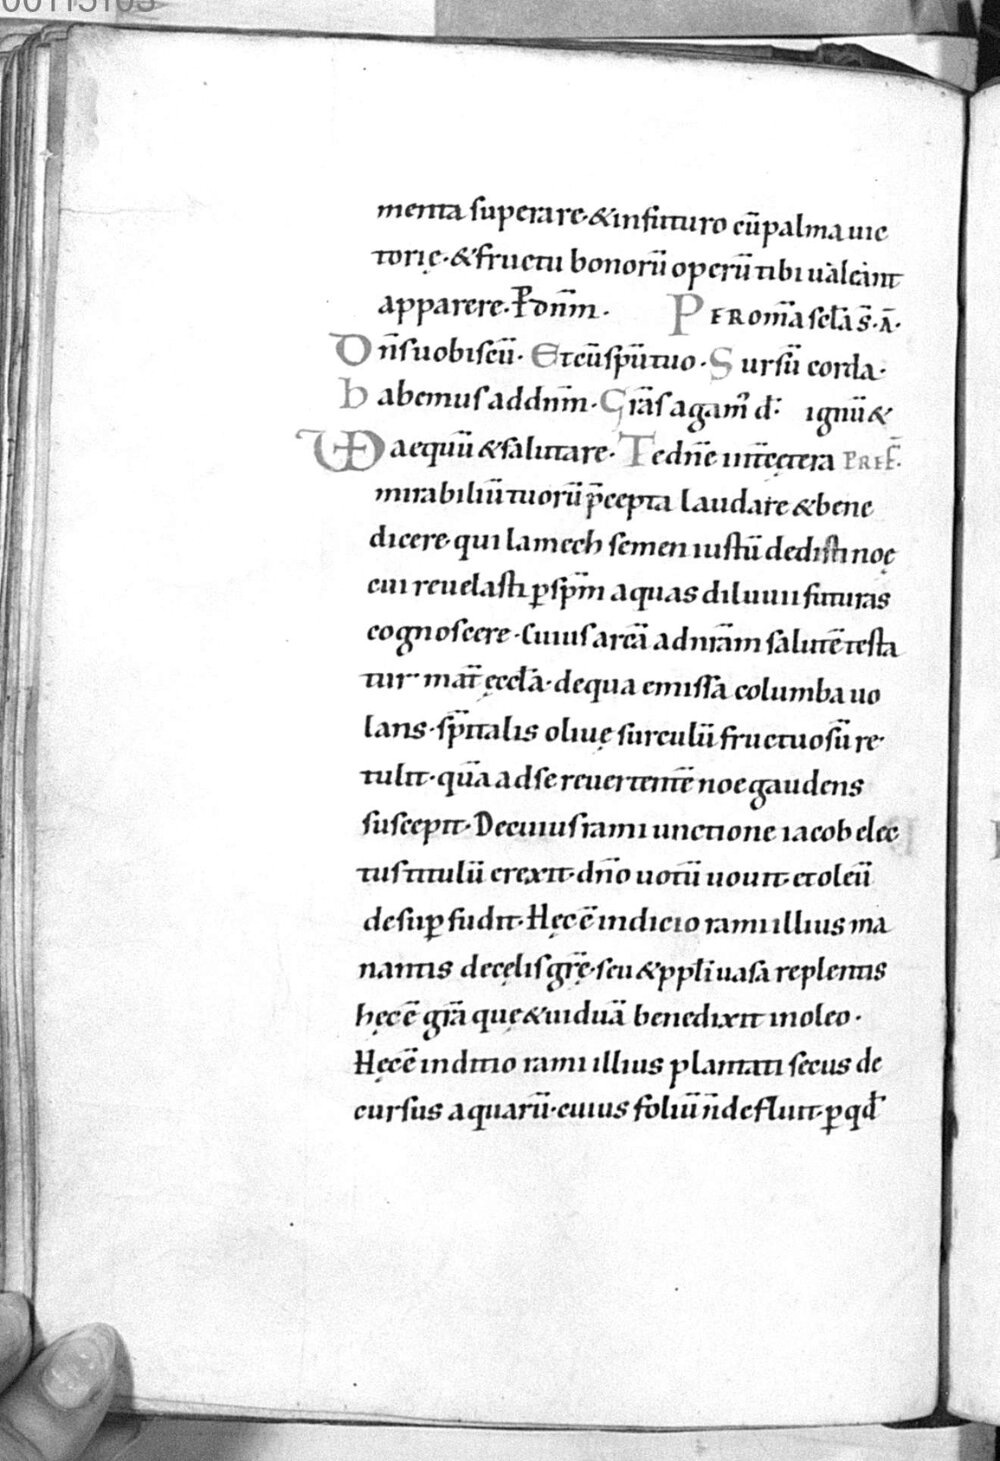 00115103
menta superare·&infuturo cū palma uic
torie·&fructu bonorū operū tibi ualeant
apparere·P̄ dn̄m· PER OM̄A sc̄la s̄·ā·
Dn̄s uobiscū· Et cū sp̄u tuo· Sursū corda·
habemus ad dn̄m· Gr̄as agam᷒ d̄: ignū &
VD aequū & salutare· Te dn̄e int̄ ectera PREF̄·
mirabiliū tuorū p̄cepta laudare & bene
dicere qui lamech semen iustū dedisti noę
cui reuelasti ꝑ sp̄m aquas diluuii futuras
cognoscere· Cuius arcā ad nr̄am salutē testa
tur mat̄ ęccl̄a· de qua emissa columba uo
lans· sp̄italis oliuę surculū fructuosū re
tulit· quā ad se reuertentē noe gaudens
suscepit· De cuius rami unctione iacob elec
tus titulū erexit· dn̄o uotū uouit et oleū
desuꝑ fudit· Hęc ē indicio rami illius ma
nantis de cęlis gr̄ę· seu & ppl̄i uasa replentis
hęc ē gr̄a quę & uiduā benedixit in oleo·
Hęc ē inditio rami illius plantati secus de
cursus aquarū· cuius foliū n̄ defluit· ꝑ qd̄